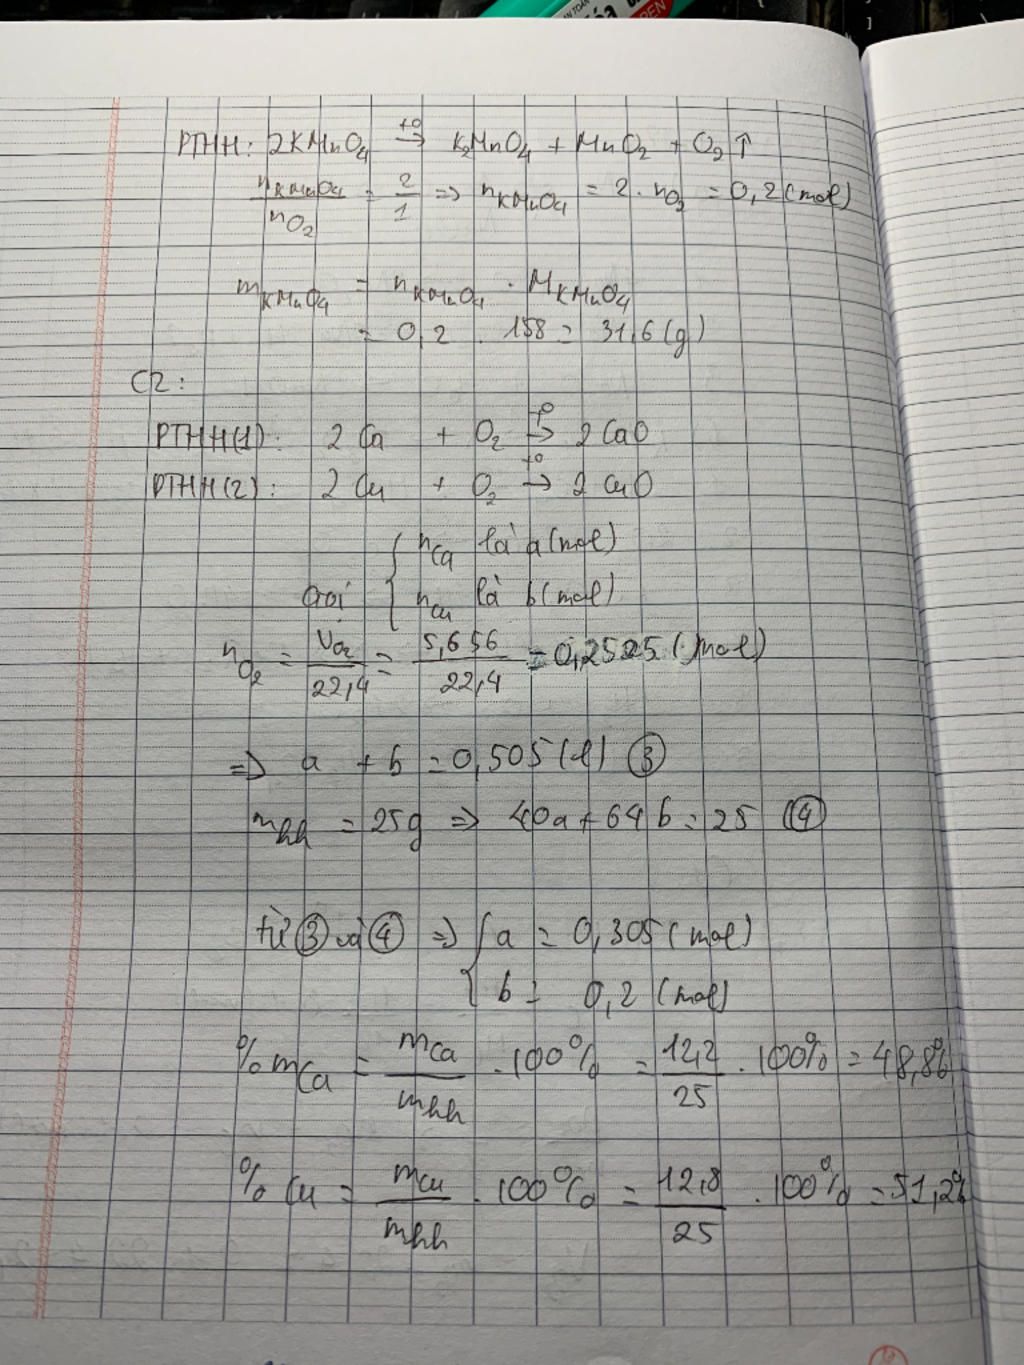 AN TOÀN
óa
PEN
PTHH: 2KMnO4 t° → K2MnO4 + MnO2 + O2 ↑
nKMnO4 / nO2 = 2/1 => nKMnO4 = 2 . nO2 = 0,2 (mol)
mKMnO4 = nKMnO4 . MKMnO4
= 0,2 . 158 = 31,6 (g)
C2:
PTHH(1): 2 Ca + O2 t° → 2 CaO
PTHH(2): 2 Cu + O2 t° → 2 CuO
Gọi { nCa là a (mol)
nCu là b (mol)
nO2 = VO2 / 22,4 = 5,656 / 22,4 = 0,2525 (mol)
=> a + b = 0,505 (l) ③
mhh = 25g => 40a + 64b = 25 (④)
từ ③ và ④ => { a = 0,305 (mol)
b = 0,2 (mol)
% mCa = mCa / mhh . 100% = 12,2 / 25 . 100% = 48,8%
% Cu = mCu / mhh . 100% = 12,8 / 25 . 100% = 51,2%